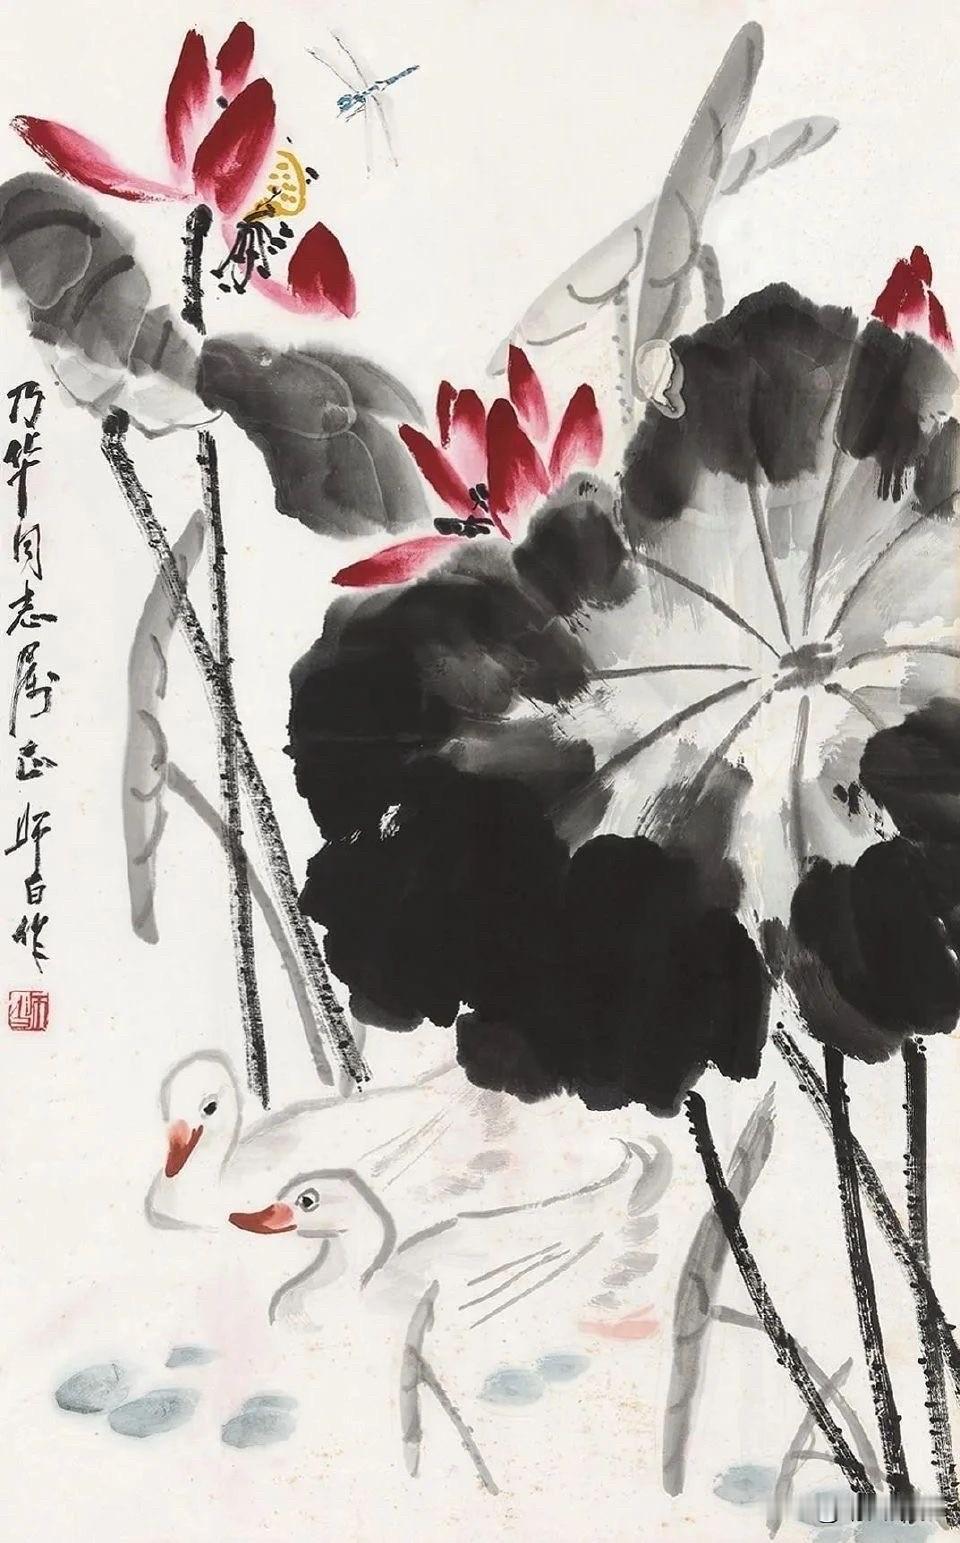 乃华同志属正师白作